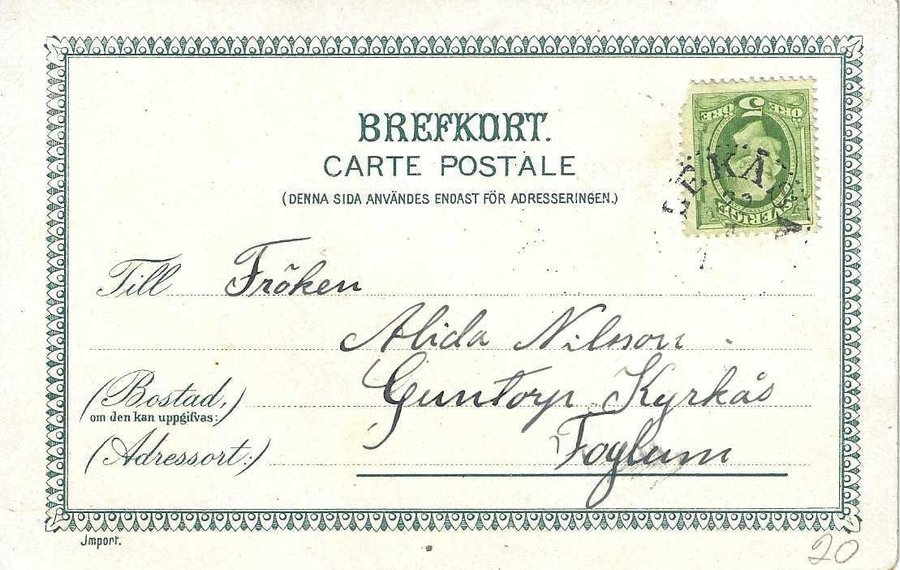 BREFKORT.
CARTE POSTALE
(DENNA SIDA ANVÄNDES ENDAST FÖR ADRESSERINGEN.)
5
ÖRE ÖRE
SVERIGE
Till Fröken
Alida Nilsson
(Bostad,) Guntorp Kyrkås
om den kan uppgifvas:
(Adressort:) Foglum
Import.
20